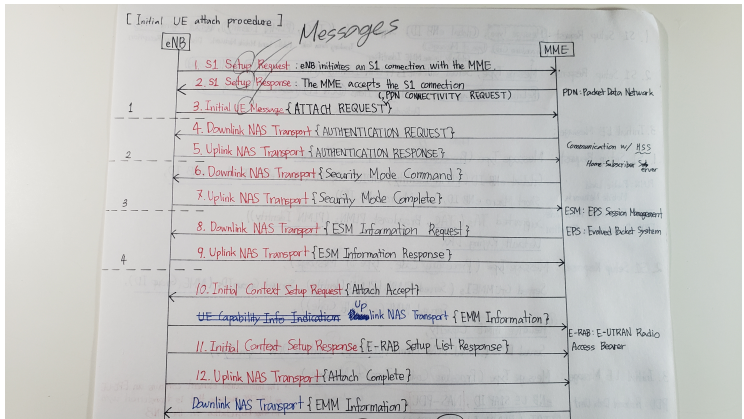 [Initial UE attach procedure]
Messages
eNB
MME
1. S1 Setup Request : eNB initiates an S1 connection with the MME.
2. S1 Setup Response : The MME accepts the S1 connection
PDN : Packet Data Network
(, PDN CONNECTIVITY REQUEST)
1
3. Initial UE Message {ATTACH REQUEST}
4. Downlink NAS Transport {AUTHENTICATION REQUEST}
Communication w/ HSS
2
5. Uplink NAS Transport {AUTHENTICATION RESPONSE}
Home Subscriber Server
6. Downlink NAS Transport {Security Mode Command}
7. Uplink NAS Transport {Security Mode Complete}
3
ESM : EPS Session Management
8. Downlink NAS Transport {ESM Information Request}
EPS : Evolved Packet System
4
9. Uplink NAS Transport {ESM Information Response}
10. Initial Context Setup Request {Attach Accept}
UE Capability Info Indication Uplink NAS Transport {EMM Information}
E-RAB : E-UTRAN Radio
Access Bearer
11. Initial Context Setup Response {E-RAB Setup List Response}
12. Uplink NAS Transport {Attach Complete}
Downlink NAS Transport {EMM Information}